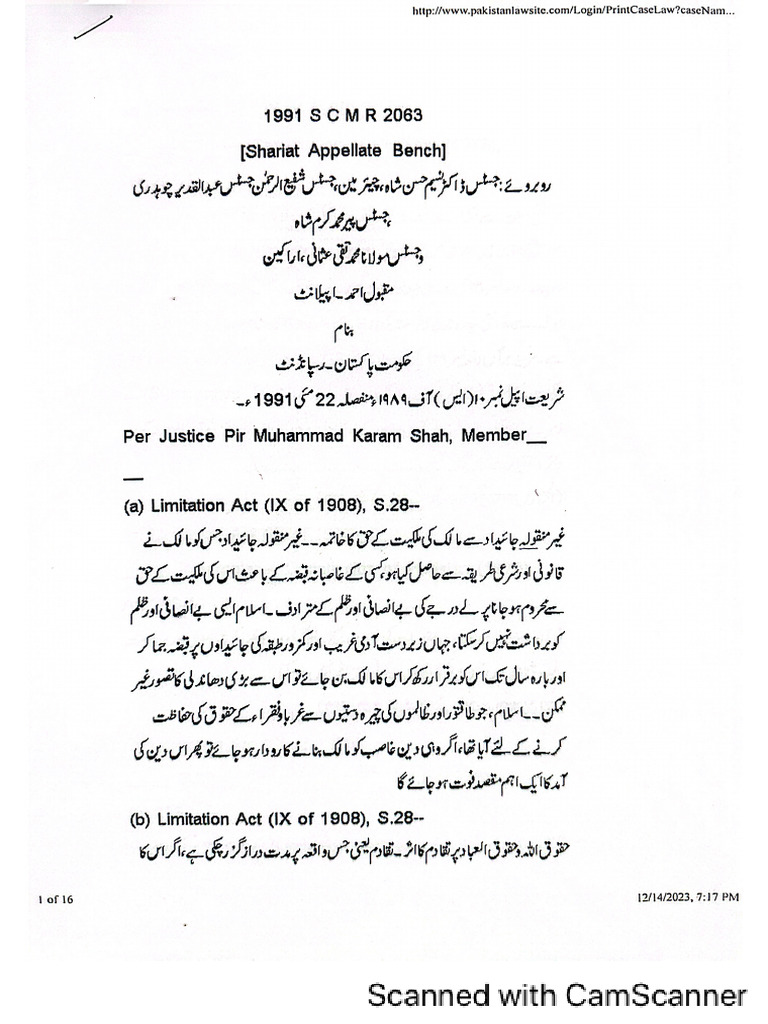 http://www.pakistanlawsite.com/Login/PrintCaseLaw?caseNam...
1991 S C M R 2063
[Shariat Appellate Bench]
روبروئے: جسٹس ڈاکٹر نسیم حسن شاہ، چیئرمین، جسٹس شفیع الرحمٰن جسٹس عبدالقدیر چوہدری
،جسٹس پیر محمد کرم شاہ
و جسٹس مولانا محمد تقی عثمانی، اراکین
مقبول احمد ۔ اپیلانٹ
بنام
حکومت پاکستان ۔ رسپانڈنٹ
شریعت اپیل نمبر ۱۰(ایس) آف ۱۹۸۹ء منفصلہ 22 مئی 1991ء۔
Per Justice Pir Muhammad Karam Shah, Member__
__
(a) Limitation Act (IX of 1908), S.28--
غیر منقولہ جائیداد سے مالک کی ملکیت کے حق کا خاتمہ ۔۔ غیر منقولہ جائیداد جس کو مالک نے
قانونی اور شرعی طریقہ سے حاصل کیا ہو، کسی کے غاصبانہ قبضہ کے باعث اس کی ملکیت کے حق
سے محروم ہو جانا پرلے درجے کی بے انصافی اور ظلم کے مترادف ۔ اسلام ایسی بے انصافی اور ظلم
کو برداشت نہیں کر سکتا، جہاں زبردست آدمی غریب اور کمزور طبقہ کی جائیدادوں پر قبضہ جما کر
اور بارہ سال تک اس کو برقرار رکھ کر اس کا مالک بن جائے تو اس سے بڑی دھاندلی کا تصور غیر
ممکن ۔۔ اسلام، جو طاقتور اور ظالموں کی چیرہ دستیوں سے غربا و فقراء کے حقوق کی حفاظت
کرنے کے لئے آیا تھا، اگر وہی دین غاصب کو مالک بنانے کا روادار ہو جائے تو پھر اس دین کی
آمد کا ایک اہم مقصد فوت ہو جائے گا
(b) Limitation Act (IX of 1908), S.28--
حقوق اللہ و حقوق العباد پر تقادم کا اثر ۔ تقادم یعنی جس واقعہ پر مدت دراز گزر چکی ہے، اگر اس کا
1 of 16
12/14/2023, 7:17 PM
Scanned with CamScanner